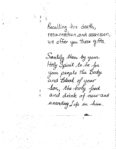 Recalling his death,
resurrection and ascension,
we offer you these gifts.
Sanctify them by your
Holy Spirit to be for
your people the Body
and Blood of your
Son, the holy food
and drink of new and
unending life in him.